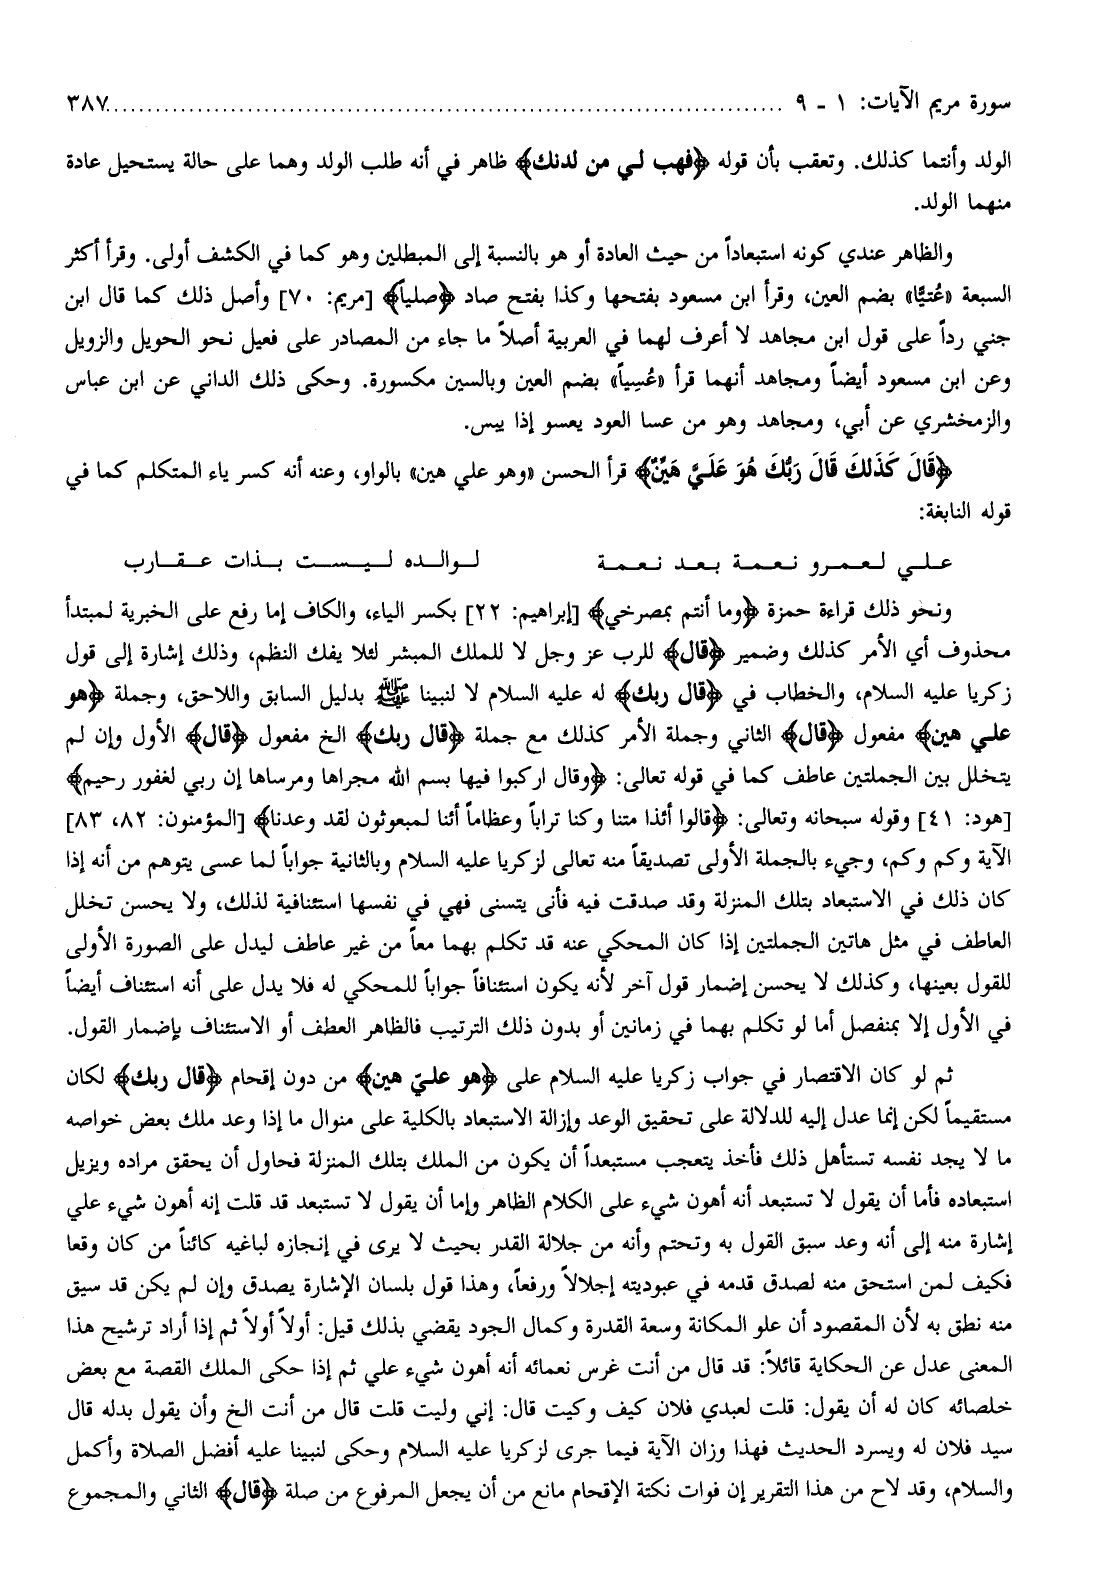 سورة مريم الآيات: ١ - ٩ ........................................................................ ٣٨٧
الولد وأنتما كذلك. وتعقب بأن قوله ﴿فهب لي من لدنك﴾ ظاهر في أنه طلب الولد وهما على حالة يستحيل عادة
منهما الولد.
والظاهر عندي كونه استبعاداً من حيث العادة أو هو بالنسبة إلى المبطلين وهو كما في الكشف أولى. وقرأ أكثر
السبعة «عُتيًّا» بضم العين، وقرأ ابن مسعود بفتحها وكذا بفتح صاد ﴿صلياً﴾ [مريم: ٧٠] وأصل ذلك كما قال ابن
جني رداً على قول ابن مجاهد لا أعرف لهما في العربية أصلاً ما جاء من المصادر على فعيل نحو الحويل والزويل
وعن ابن مسعود أيضاً ومجاهد أنهما قرأ «عُسِياً» بضم العين وبالسين مكسورة. وحكى ذلك الداني عن ابن عباس
والزمخشري عن أبي، ومجاهد وهو من عسا العود يعسو إذا يبس.
﴿قَالَ كَذَلكَ قَالَ رَبُّكَ هُوَ عَلَيَّ هَيِّنٌ﴾ قرأ الحسن «وهو علي هين» بالواو، وعنه أنه كسر ياء المتكلم كما في
قوله النابغة:
علي لعمرو نعمة بعد نعمة لوالده ليست بذات عقارب
ونحو ذلك قراءة حمزة ﴿وما أنتم بمصرخي﴾ [إبراهيم: ٢٢] بكسر الياء، والكاف إما رفع على الخبرية لمبتدأ
محذوف أي الأمر كذلك وضمير ﴿قال﴾ للرب عز وجل لا للملك المبشر لئلا يفك النظم، وذلك إشارة إلى قول
زكريا عليه السلام، والخطاب في ﴿قال ربك﴾ له عليه السلام لا لنبينا ﷺ بدليل السابق واللاحق، وجملة ﴿هو
علي هين﴾ مفعول ﴿قال﴾ الثاني وجملة الأمر كذلك مع جملة ﴿قال ربك﴾ الخ مفعول ﴿قال﴾ الأول وإن لم
يتخلل بين الجملتين عاطف كما في قوله تعالى: ﴿وقال اركبوا فيها بسم الله مجراها ومرساها إن ربي لغفور رحيم﴾
[هود: ٤١] وقوله سبحانه وتعالى: ﴿قالوا أئذا متنا وكنا تراباً وعظاماً أئنا لمبعوثون لقد وعدنا﴾ [المؤمنون: ٨٢، ٨٣]
الآية وكم وكم، وجيء بالجملة الأولى تصديقاً منه تعالى لزكريا عليه السلام وبالثانية جواباً لما عسى يتوهم من أنه إذا
كان ذلك في الاستبعاد بتلك المنزلة وقد صدقت فيه فأنى يتسنى فهي في نفسها استئنافية لذلك، ولا يحسن تخلل
العاطف في مثل هاتين الجملتين إذا كان المحكي عنه قد تكلم بهما معاً من غير عاطف ليدل على الصورة الأولى
للقول بعينها، وكذلك لا يحسن إضمار قول آخر لأنه يكون استئنافاً جواباً للمحكي له فلا يدل على أنه استئناف أيضاً
في الأول إلا بمنفصل أما لو تكلم بهما في زمانين أو بدون ذلك الترتيب فالظاهر العطف أو الاستئناف بإضمار القول.
ثم لو كان الاقتصار في جواب زكريا عليه السلام على ﴿هو عليّ هين﴾ من دون إقحام ﴿قال ربك﴾ لكان
مستقيماً لكن إنما عدل إليه للدلالة على تحقيق الوعد وإزالة الاستبعاد بالكلية على منوال ما إذا وعد ملك بعض خواصه
ما لا يجد نفسه تستأهل ذلك فأخذ يتعجب مستبعداً أن يكون من الملك بتلك المنزلة فحاول أن يحقق مراده ويزيل
استبعاده فأما أن يقول لا تستبعد أنه أهون شيء على الكلام الظاهر وإما أن يقول لا تستبعد قد قلت إنه أهون شيء علي
إشارة منه إلى أنه وعد سبق القول به وتحتم وأنه من جلالة القدر بحيث لا يرى في إنجازه لباغيه كائناً من كان وقعا
فكيف لمن استحق منه لصدق قدمه في عبوديته إجلالاً ورفعاً، وهذا قول بلسان الإشارة يصدق وإن لم يكن قد سيق
منه نطق به لأن المقصود أن علو المكانة وسعة القدرة وكمال الجود يقضي بذلك قيل: أولاً أولاً ثم إذا أراد ترشيح هذا
المعنى عدل عن الحكاية قائلاً: قد قال من أنت غرس نعمائه أنه أهون شيء علي ثم إذا حكى الملك القصة مع بعض
خلصائه كان له أن يقول: قلت لعبدي فلان كيف وكيت قال: إني وليت قلت قال من أنت الخ وأن يقول بدله قال
سيد فلان له ويسرد الحديث فهذا وزان الآية فيما جرى لزكريا عليه السلام وحكى لنبينا عليه أفضل الصلاة وأكمل
والسلام، وقد لاح من هذا التقرير إن فوات نكتة الإقحام مانع من أن يجعل المرفوع من صلة ﴿قال﴾ الثاني والمجموع